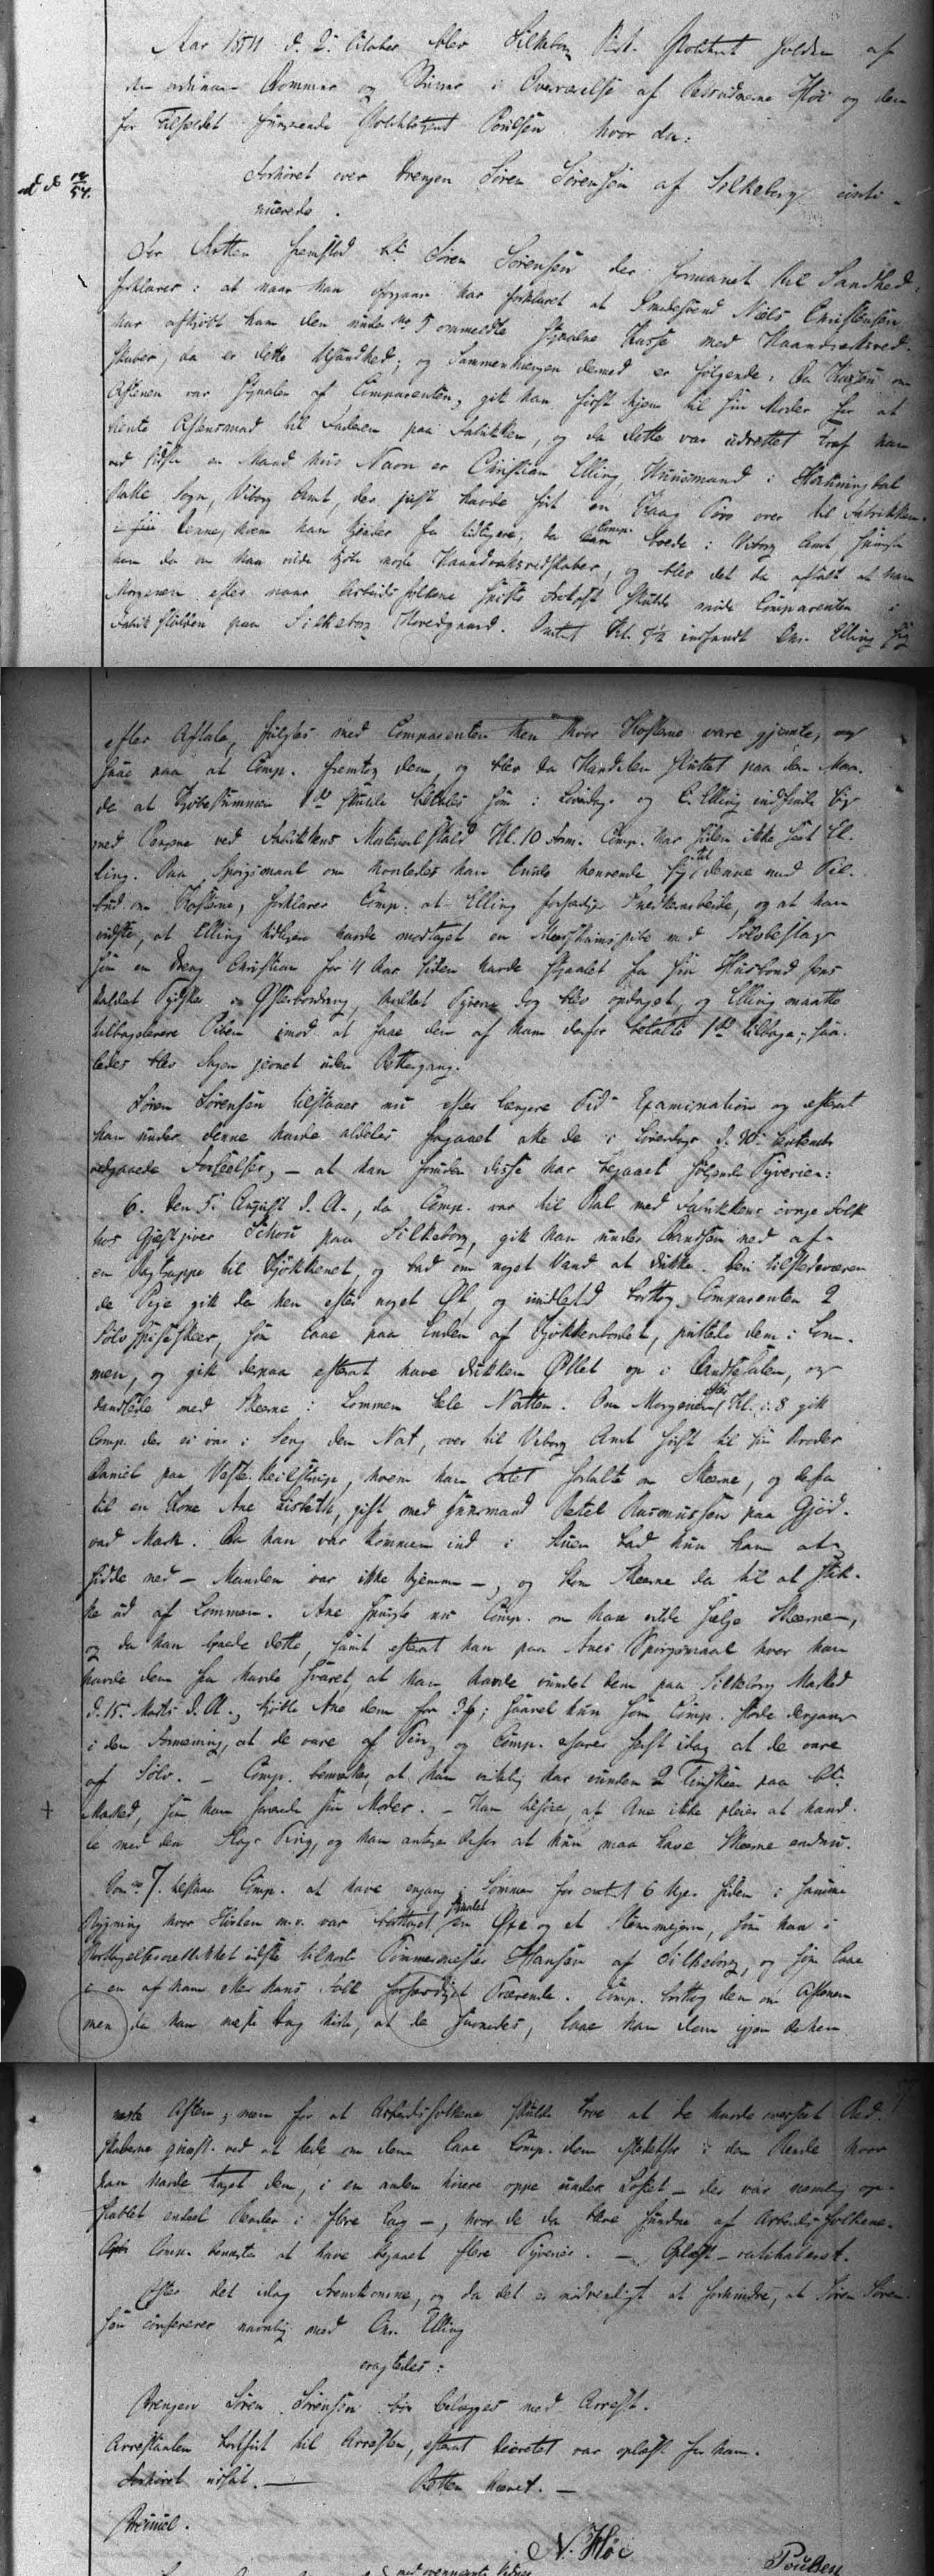 Aar 1854 d. 2. October blev Silkeborg Birks Politiret holden af
den ordinaire Dommer og Skriver i Overværelse af Retsvidnerne Høi og den
for Tilfældet fungerende Politibetjent Poulsen hvor da:
Forhøret over Drengen Søren Sørensen af Silkeborg conti-
nuerede.
For Retten fremstod bte Søren Sørensen der formanet til Sandhed
forklarer: at naar han forgaar har forklaret at Smedesvend Niels Christensen
har afkjøbt ham den under No 5 ommeldte stjaalne Kasse med Haandværksred-
skaber, da er dette Usandhed; og Sammenhængen dermed er følgende: Da Kassen om
Aftenen var stjaalen af Comparenten, gik han først hjem til sin Moder for at
hente Aftensmad til Faderen paa Fabrikken, og da dette var udrettet traf han
ved Sidste en Mand hvis Navn er Christian Elling, Huusmand i
Sogn, Viborg Amt, der just havde ført en Vaag Tørv over til Fabrikken.
Denne, hvem han kjender fra tidligere, da Comp. boede i Viborg Amt spurgte
han da om han vilde kjøbe nogle Haandværksredskaber, og blev det da aftalt at han
Morgenen efter naar Arbeidsfolkene spiste Frokost skulde møde Comparenten i
Fabrikstalden paa Silkeborg Hovedgaard. Omtrent Kl. 7½ indfandt Chr. Elling sig
efter Aftale, fulgtes med Comparenten hen hvor Kosterne vare gjemte, og
saae paa at Comp. fremtog dem, og blev da Handelen sluttet paa den Maa-
de at Kjøbesummen 1 rd skulde betales som i Løverdags og C. Elling indfinde sig
med Pengene ved Fabrikkens Materialstald Kl. 10 Form. Comp. har siden ikke seet El-
ling. Paa Spørgsmaal om hvorledes han turde henvende sig til denne med Til-
bud om Kosterne, forklarer Comp. at Elling forfærdiger Snedkerarbeide, og at han
vidste, at Elling tidligere havde modtaget en Merskumspibe med Sølvbeslag
som en Dreng Christian for 4 Aar siden havde stjaalet fra sin Husbond Jens
kaldet Tydsker i Østerbordrup, hvilket Tyveri dog blev opdaget, og Elling maatte
tilbagelevere Piben imod at faae den af ham derfor betalte 1 rd tilbage; saa-
ledes blev Sagen jevnet uden Rettergang.
Søren Sørensen tilstaaer nu efter længere Tids Examination og efterat
han under denne havde aldeles fragaaet alle de i Løverdags d. 30. September
vedgaaede Forseelser, – at han foruden disse har begaaet følgende Tyverier:
6. Den 5. August d. A., da Comp. var til Bal med Fabrikkens øvrige Folk
hos Gjæstgiver Schou paa Silkeborg, gik han under Dandsen ned af
en Bagtrappe til Kjøkkenet, og bad om noget Vand at drikke. Den tilstedeværen-
de Pige gik da hen efter noget Øl, og imidlertid borttog Comparenten 2
Sølvspiseskeer, som laae paa Enden af Kjøkkenbordet, puttede dem i Lom-
men, og gik derpaa efterat have drukken Øllet op i Dandsesalen, og
dandsede med Skeerne i Lommen hele Natten. Om Morgenen efter Kl. c. 8 gik
Comp. der ei var i Seng den Nat, over til Viborg Amt først til sin Broder
Daniel paa Vester Keilstrup, hvem han Intet fortalte om Skeerne, og derfra
til en Kone Ane Lisbeth, gift med Huusmand Peter Rasmussen paa Gjød-
vad Mark. Da han var kommen ind i Stuen bad hun ham at
sidde ned – Manden var ikke hjemme –, og kom Skeerne da til at stik-
ke ud af Lommen. Ane spurgte nu Comp. om han vilde sælge Skeerne,
og da han havde dette, samt efterat han paa Anes Spørgsmaal hvor han
havde dem fra havde svaret, at han havde vundet dem paa Silkeborg Marked
d. 15. Marts d. A., kjøbte Ane dem for 3 ß; saavel hun som Comp. stode dengang
i den Formening, at de vare af Tin, og Comp. erfarer først idag at de vare
af Sølv. – Comp. bemærker, at han virkelig har vunden 2 Tinskeer paa bte
Marked, som han forærede sin Moder. – Han tilføier, at Ane ikke pleier at hand-
le med den Slags Ting, og han antager derfor at hun maa have Skeerne endnu.
Som No 7. tilstaaer Comp. at have engang i Sommer for omtrent 6 Uger siden i samme
Bygning hvor Høvlen m.v. var borttaget, stjaalet en Øxe og et Stemmejern, som han i
vidste tilhørte Tømmermester Hansen af Silkeborg, og som laae
i en af ham eller hans Folk forfærdiget Tværrende. Comp. borttog dem om Aftenen
men da han næste Dag hørte, at de savnedes, laae han dem igjen derhen
næste Aften; men for at Arbeidsfolkene skulde troe at de havde overseet Red-
skaberne qvæst. ved at lede om dem laae Comp. dem istedetfor i den Rende hvor
han havde taget dem, i en anden høiere oppe under Loftet – der var nemlig op-
stablet endeel Render i flere Lag –, hvor de da bleve fundne af Arbeidsfolkene.
Comp. benægter at have begaaet flere Tyverier. – Oplæst – ratihaberet.
Efter det idag Fremkomne, og da det er nødvendigt at forhindre, at Søren Søren-
sen confererer navnlig med Chr. Elling
eragtedes:
Drengen Søren Sørensen bør belægges med Arrest.
Arrestanten bortført til Arresten, efterat Decretet var oplæst for ham.
Forhøret udsat. – Retten hævet. –
N. Høi
Poulsen